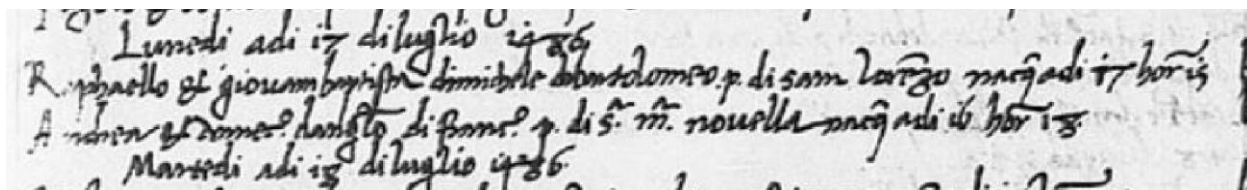 Lunedi adi 17 di luglio 1486
Raphaello & giovambaptista di michele di bartolomeo p. di sam lorēzo nacq̄ adi 17 hor̄ 15
Andrea & domec.º dangl̄o di franc.º p. di s.ª m.ª novella nacq̄ adi 16 hor̄ 18
Martedi adi 18 di luglio 1486